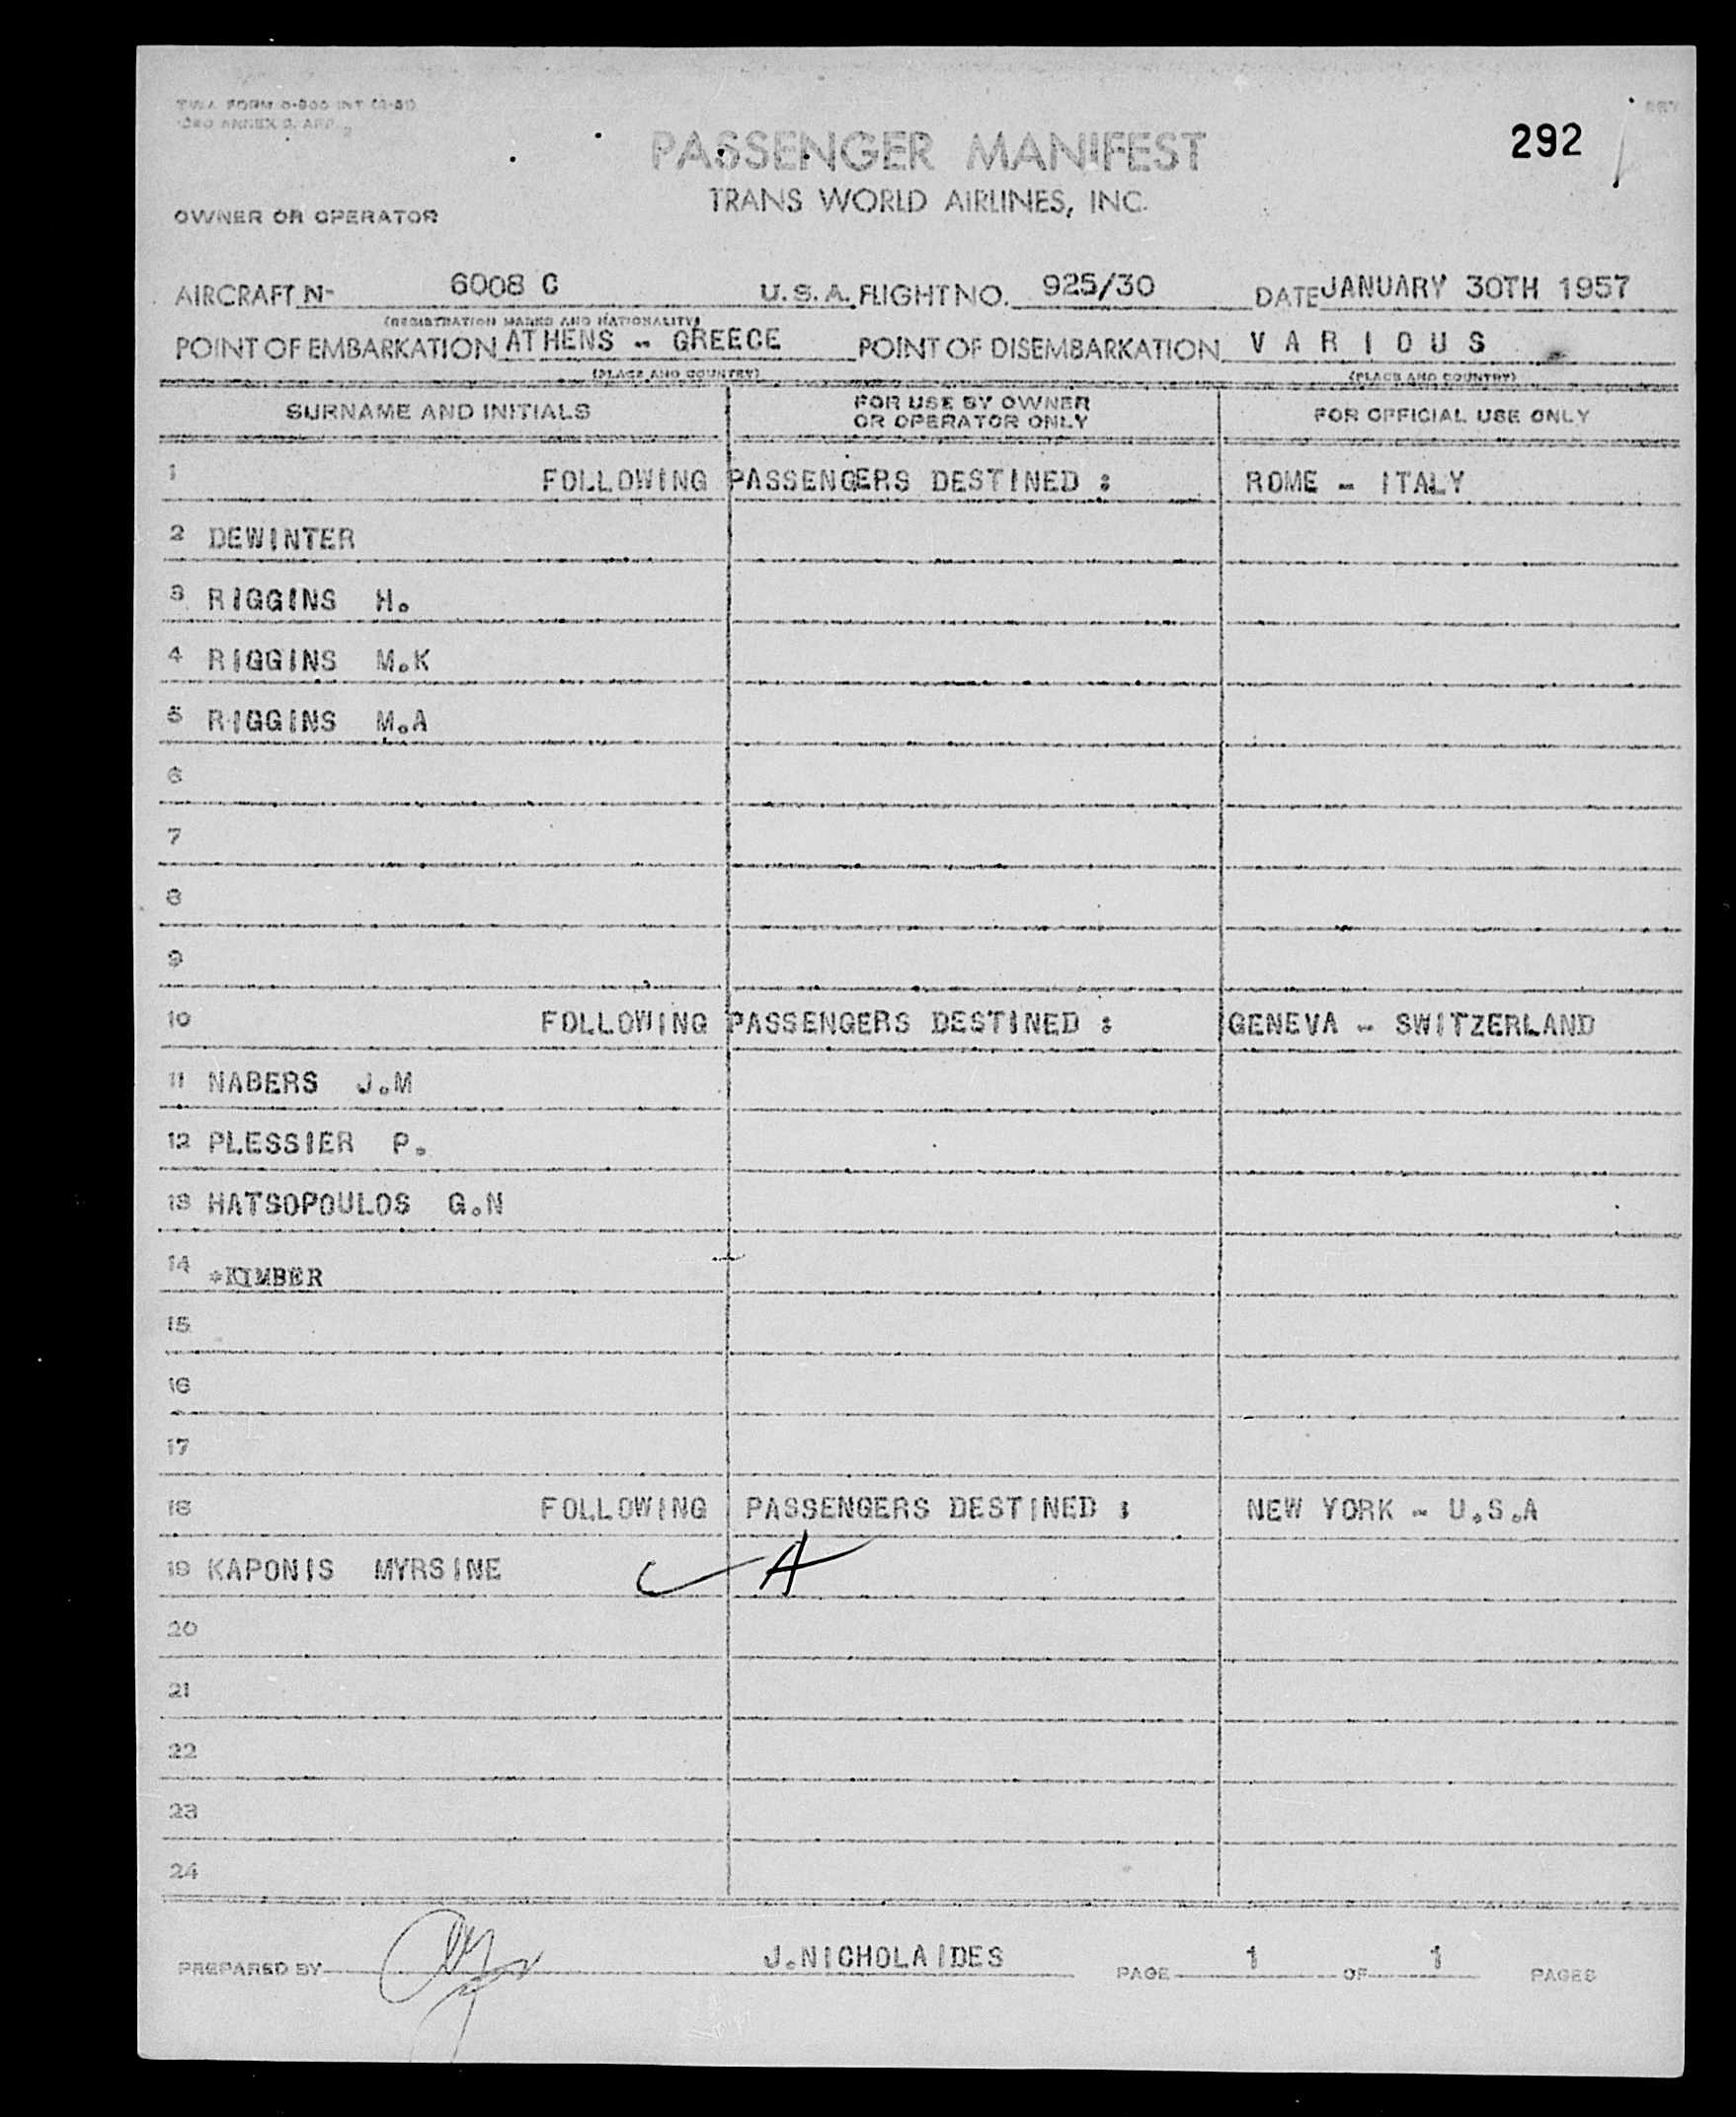 TWA FORM O-800 INT (3-51)
ICAO ANNEX 9, APP. 2
292
PASSENGER MANIFEST
TRANS WORLD AIRLINES, INC.
OWNER OR OPERATOR
AIRCRAFT N- 6008 C U.S.A. FLIGHT NO. 925/30 DATE JANUARY 30TH 1957
(REGISTRATION MARKS AND NATIONALITY)
POINT OF EMBARKATION ATHENS - GREECE POINT OF DISEMBARKATION V A R I O U S
(PLACE AND COUNTRY) (PLACE AND COUNTRY)
SURNAME AND INITIALS FOR USE BY OWNER OR OPERATOR ONLY FOR OFFICIAL USE ONLY
1 FOLLOWING PASSENGERS DESTINED : ROME - ITALY
2 DEWINTER
3 RIGGINS H.
4 RIGGINS M.K
5 RIGGINS M.A
6
7
8
9
10 FOLLOWING PASSENGERS DESTINED : GENEVA - SWITZERLAND
11 NABERS J.M
12 PLESSIER P.
13 HATSOPOULOS G.N
14 *KIMBER
15
16
17
18 FOLLOWING PASSENGERS DESTINED : NEW YORK - U.S.A
19 KAPONIS MYRSINE A
20
21
22
23
24
PREPARED BY J.NICHOLAIDES PAGE 1 OF 1 PAGES